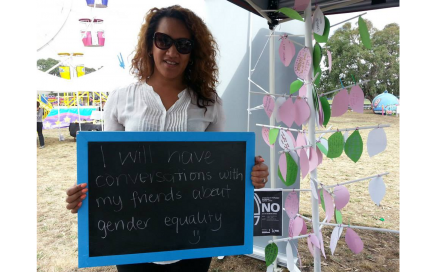 I will have
conversations with
my friends about
gender equality
:)
NO